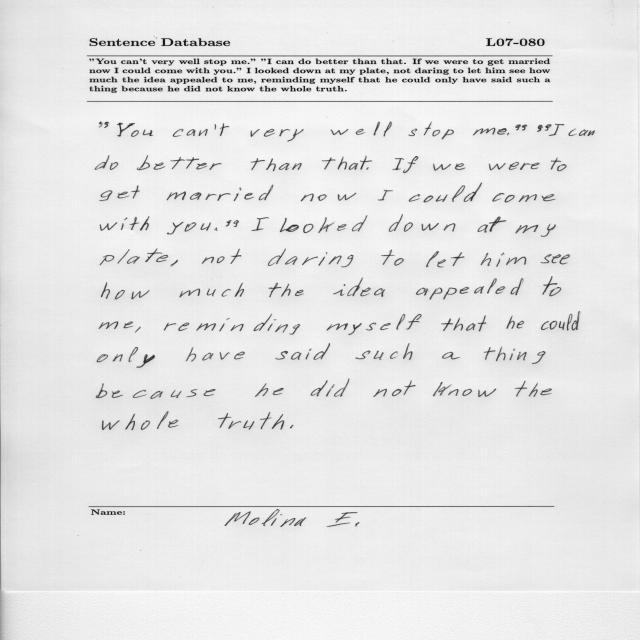 Sentence Database L07-080
"You can't very well stop me." "I can do better than that. If we were to get married
now I could come with you." I looked down at my plate, not daring to let him see how
much the idea appealed to me, reminding myself that he could only have said such a
thing because he did not know the whole truth.
"You can't very well stop me." "I can
do better than that. If we were to
get married now I could come
with you." I looked down at my
plate, not daring to let him see
how much the idea appealed to
me, reminding myself that he could
only have said such a thing
because he did not know the
whole truth.
Name: Molina E.